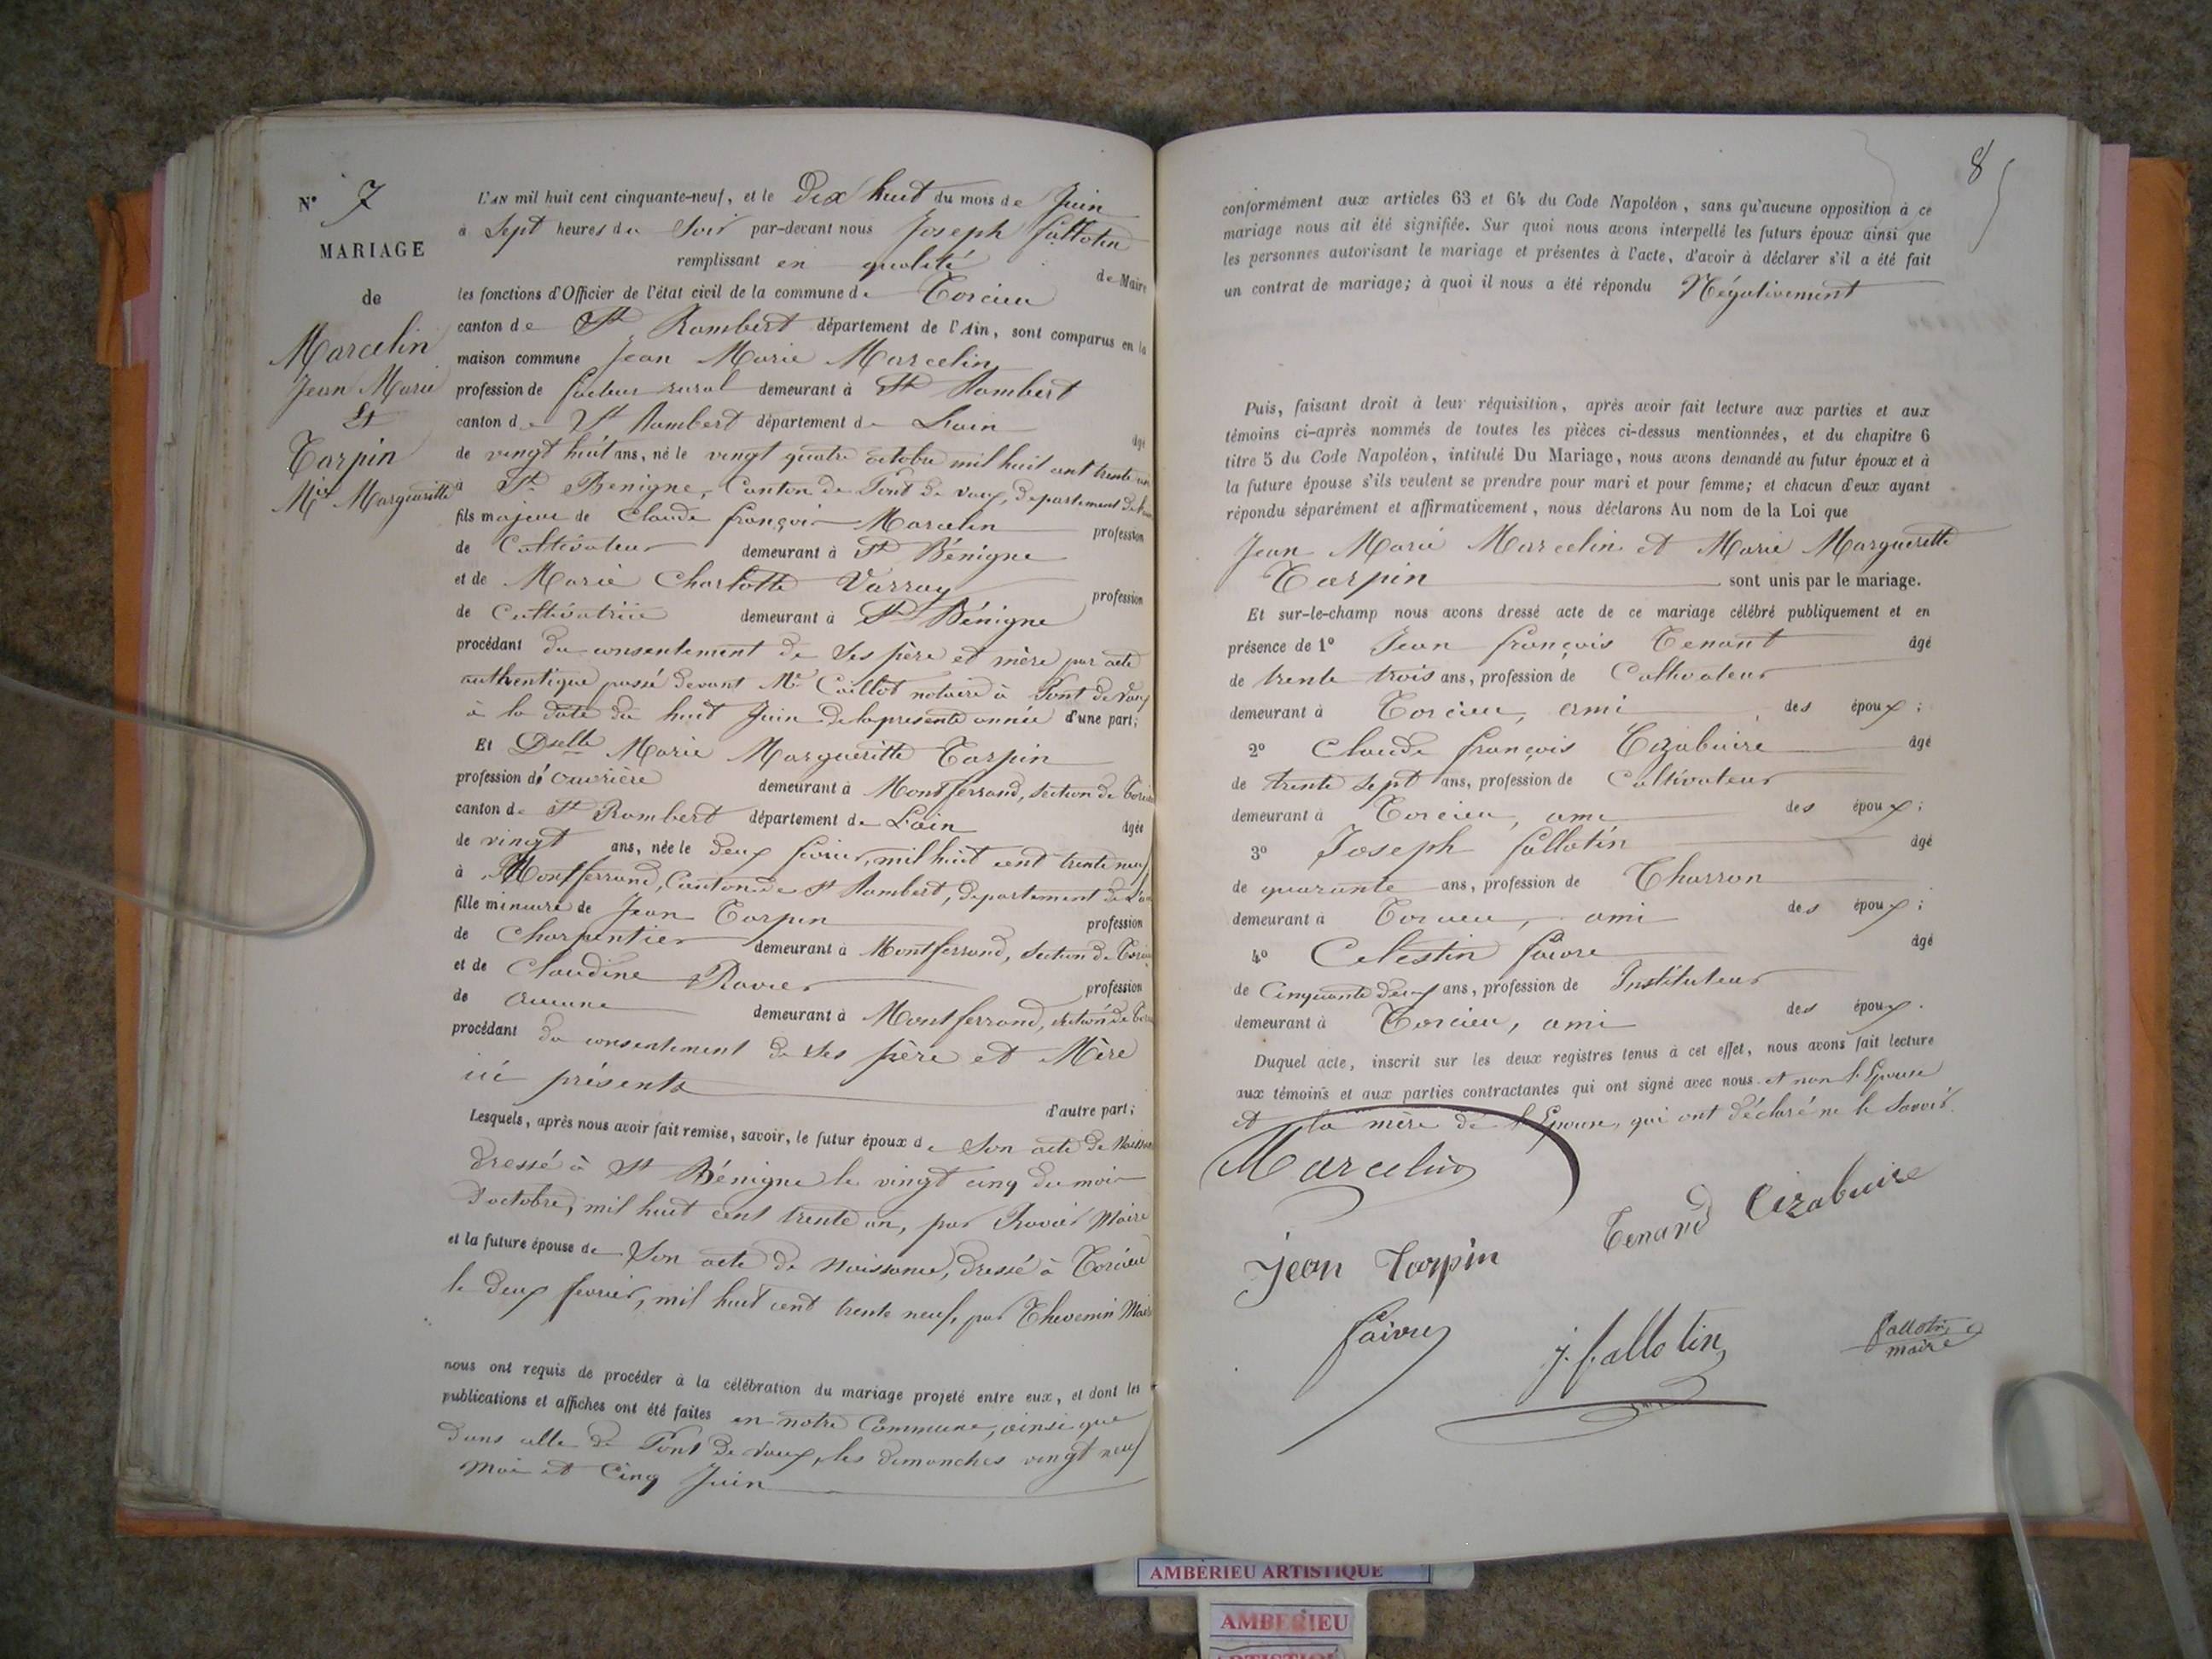 N° 7
MARIAGE
de
Marcelin
Jean Marie
Et
Tarpin
Mie Margueritte
L'AN mil huit cent cinquante-neuf, et le Dix huit du mois de Juin
à Sept heures du Soir par-devant nous Joseph fallotin
remplissant en qualité de Maire
les fonctions d'Officier de l'état civil de la commune de Torcieu
canton de St Rambert département de l'Ain, sont comparus en la
maison commune Jean Marie Marcelin
profession de facteur rural demeurant à St Rambert
canton de St Rambert département de L'ain âgé
de vingt huit ans, né le vingt quatre octobre mil huit cent trente un
à St Benigne, Canton de Pont de vaux, departement de l'ain
fils majeur de Claude françois Marcelin profession
de Cultivateur demeurant à St Bénigne
et de Marie Charlotte Varray profession
de Cultivatrice demeurant à St Bénigne
procédant du consentement de Ses père et mère par acte
authentique passé devant Me Caillot notaire à Pont de Vaux
à la date du huit Juin de la presente année d'une part;
Et Dselle Marie Margueritte Tarpin
profession d'ouvrière demeurant à Montferrand, Section de Torcieu
canton de St Rambert département de L'ain âgée
de vingt ans, née le deux fevrier, mil huit cent trente neuf
à Montferrand, Canton de St Rambert, departement de L'ain
fille mineure de Jean Tarpin profession
de Charpentier demeurant à Montferrand, Section de Torcieu
et de Claudine Ravier profession
de aucune demeurant à Montferrand, section de Torcieu
procédant du consentement de Ses père et Mère
ici présents
d'autre part;
Lesquels, après nous avoir fait remise, savoir, le futur époux de Son acte de Naissance
dressé à St Bénigne le vingt cinq du mois
d'octobre, mil huit cent trente un, par Maire
et la future épouse de Son acte de Naissance, dressé à Torcieu
le deux fevrier, mil huit cent trente neuf, par Thevenin Maire
nous ont requis de procéder à la célébration du mariage projeté entre eux, et dont les
publications et affiches ont été faites en notre Commune, ainsi que
dans celle de Pont de Vaux, les dimanches vingt neuf
Mai et Cinq Juin
8
conformément aux articles 63 et 64 du Code Napoléon, sans qu'aucune opposition à ce
mariage nous ait été signifiée. Sur quoi nous avons interpellé les futurs époux ainsi que
les personnes autorisant le mariage et présentes à l'acte, d'avoir à déclarer s'il a été fait
un contrat de mariage; à quoi il nous a été répondu Négativement
Puis, faisant droit à leur réquisition, après avoir fait lecture aux parties et aux
témoins ci-après nommés de toutes les pièces ci-dessus mentionnées, et du chapitre 6
titre 5 du Code Napoléon, intitulé Du Mariage, nous avons demandé au futur époux et à
la future épouse s'ils veulent se prendre pour mari et pour femme; et chacun d'eux ayant
répondu séparément et affirmativement, nous déclarons Au nom de la Loi que
Jean Marie Marcelin et Marie Margueritte
Tarpin sont unis par le mariage.
Et sur-le-champ nous avons dressé acte de ce mariage célébré publiquement et en
présence de 1° Jean françois Tenant âgé
de trente trois ans, profession de Cultivateur
demeurant à Torcieu, ami des époux;
2° Claude françois Cizabuire âgé
de trente Sept ans, profession de Cultivateur
demeurant à Torcieu, ami des époux;
3° Joseph fallotin âgé
de quarante ans, profession de Charron
demeurant à Torcieu, ami des époux;
4° Celestin faivre âgé
de Cinquante deux ans, profession de Instituteur
demeurant à Torcieu, ami des époux.
Duquel acte, inscrit sur les deux registres tenus à cet effet, nous avons fait lecture
aux témoins et aux parties contractantes qui ont signé avec nous et non l'Epouse
et la mère de l'Epouse, qui ont déclaré ne le Savoir.
Marcelin
Tenand Cizabuire
Jean Tarpin
faivre
j. fallotin
fallotin
maire
AMBÉRIEU ARTISTIQUE
AMBERIEU
ARTISTIQUE